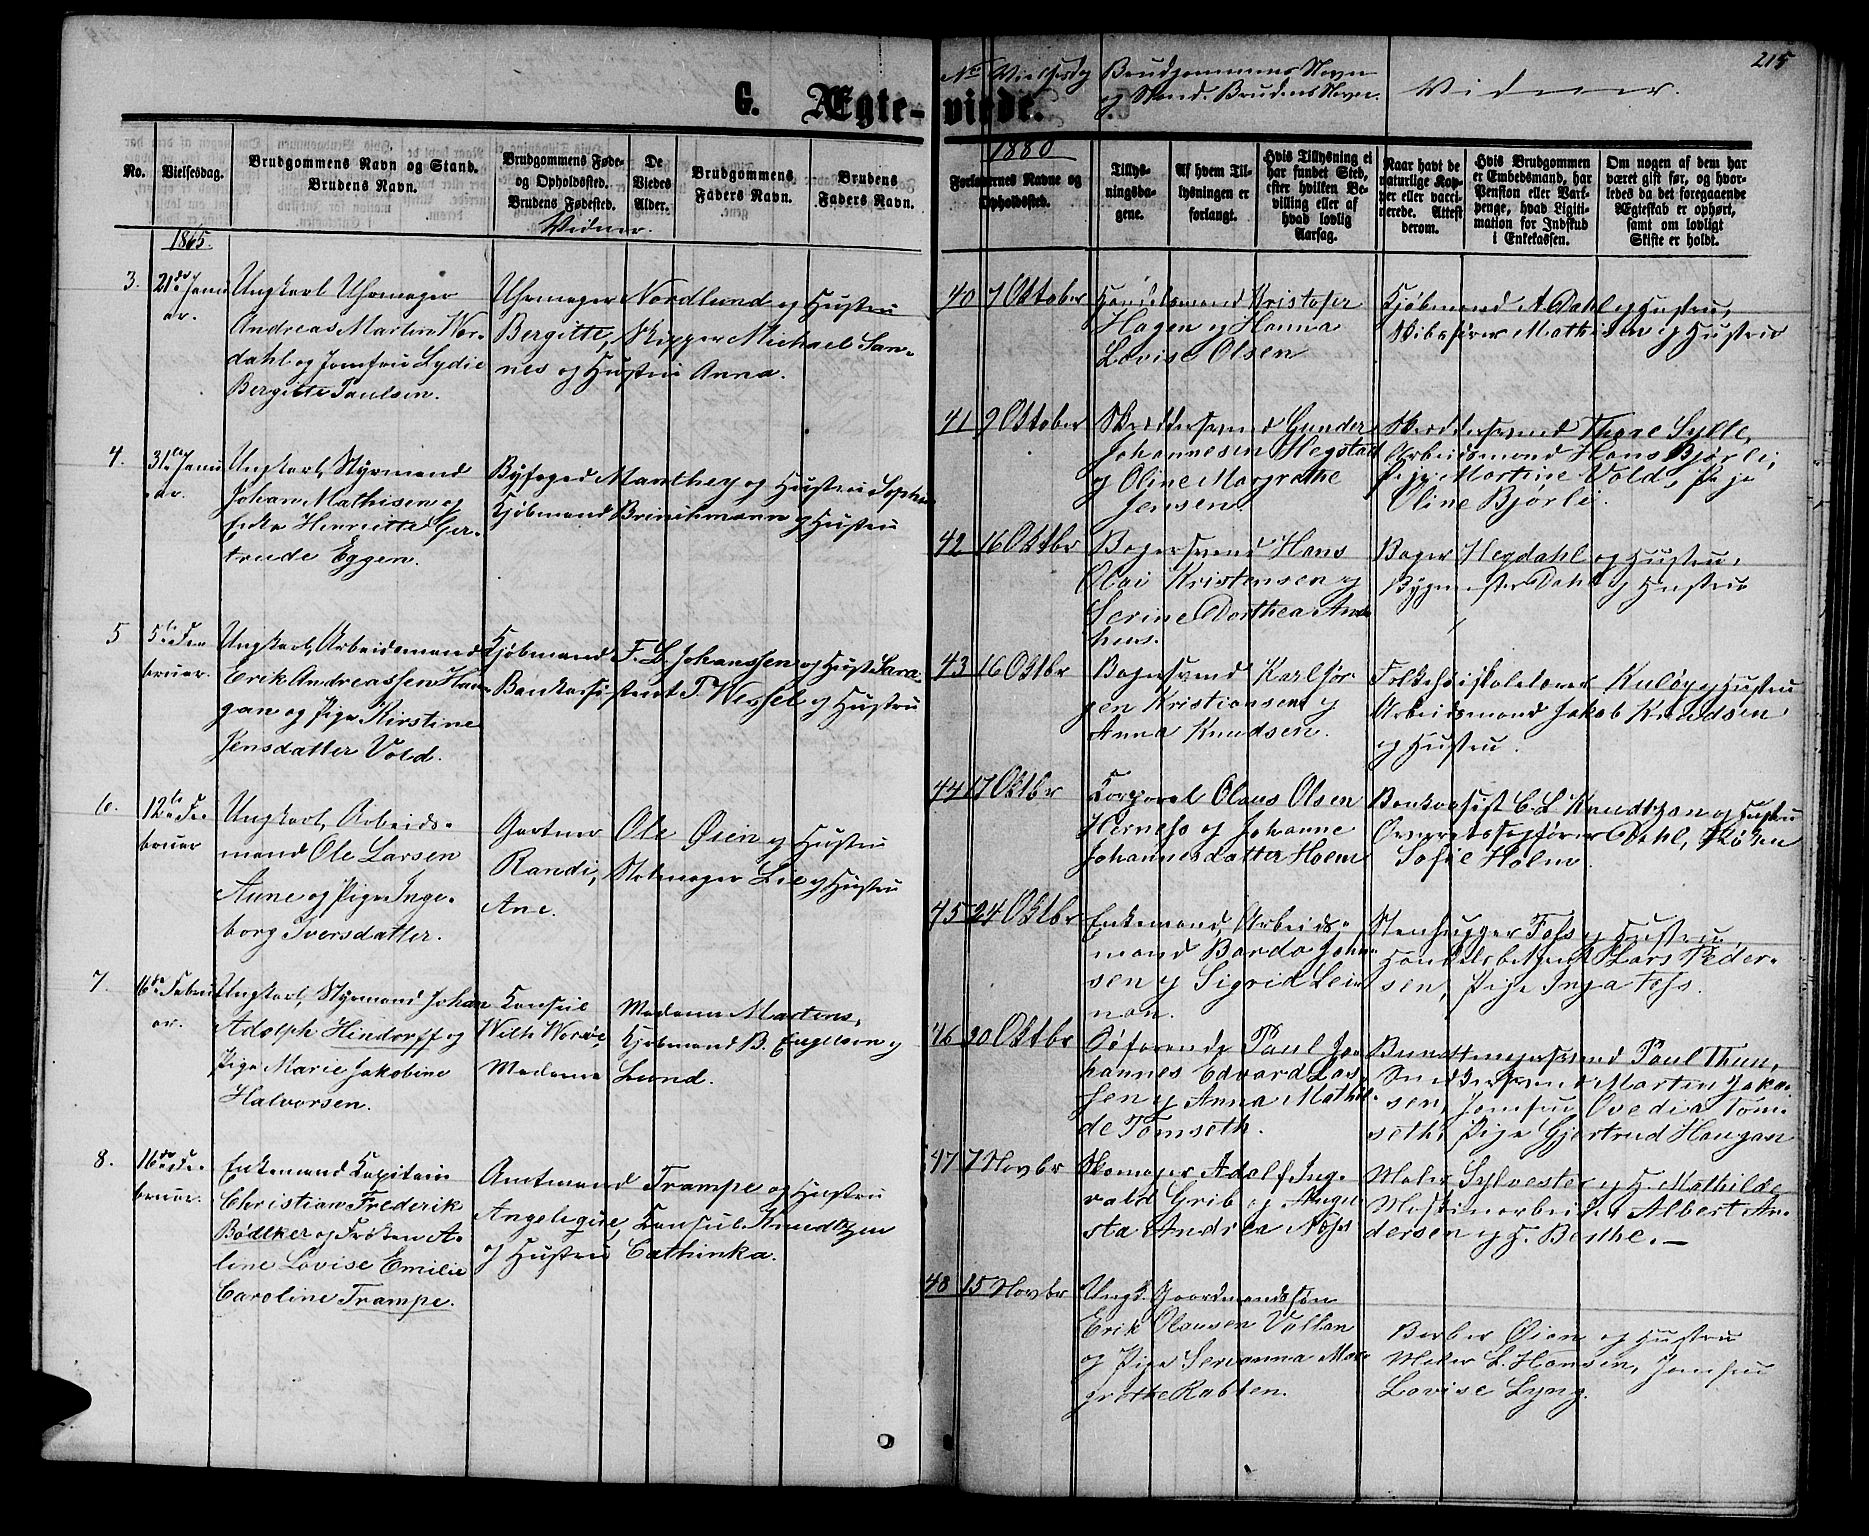 215
G. Ægte-viede.
No.
Vielsesdag.
Brudgommens Navn og Stand.
Brudens Navn.
Brudgommens Føde-
og Opholdssted.
Brudens Fødested.
De
Viedes
Alder.
Brudgommens
Faders Navn.
Brudens
Faders Navn.
Vidner.
1865.
3.
21de Janu
ar.
Ungkarl Uhrmager
Andreas Martin Nor-
dahl og Jomfru Lydie
Bergitte Paulsen.
Uhrmager Nordlund og Hustru
Bergitte, Skipper Michael San-
nes og Hustru Anna.
4.
31te Janu
ar.
Ungkarl, Styrmand
Johan Mathisen og
Enke Henriette Ger-
trude Eggen.
Byfoged Manthey og Hustru Sophie
Kjøbmand Brinchmann og Hustru
5
5te Fe-
bruar.
Ungkarl, Arbeidsmand
Erik Andreassen Hau-
gan og Pige Kirstine
Jensdatter Vold.
Kjøbmand F. L. Johanssen og Hust. Sara.
Bankassistent T. Wessel og Hustru
6.
12te Fe-
bruar
Ungkarl, Arbeids-
mand Ole Larsen
Aune og Pige Inge-
borg Iversdatter.
Gartner Ole Øien og Hustru
Randi, Skomager Lie og Hustru
Ane.
7.
16de Febru
ar.
Ungkarl, Styrmand Johan
Adolph Hindorff og
Pige Marie Jakobine
Halvorsen.
Konsul Madame Martens,
Wilh. Werøe, Kjøbmand B. Engelsen og
Madame Lund.
8.
16de Fe-
bruar.
Enkemand Kapitain
Christian Frederik
Bødtker og Frøken A-
line Lovise Emilie
Caroline Trampe.
Amtmand Trampe og Hustru
Angelique, Konsul Knudtzon
og Hustru Cathinka.
No Vielsesdg
Brudgommens Navn
og Stand. Brudens Navn.
Vidner.
1880
Forlovernes Navne og
Opholdssted.
Tillys-
ningsda-
gene.
Af hvem Til-
lysningen er
forlangt.
Hvis Tillysning ei
har fundet Sted,
efter hvilken Be-
villing eller af
hvad lovlig
Aarsag.
Naar havt de
naturlige Kop-
per eller vacci-
nerede. Attest
derom.
Hvis Brudgommen
er Embedsmand, har
Pension eller Vart-
penge, hvad Legiti-
mation for Indskud
i Enkekassen.
Om nogen af dem har
været gift før, og hvor-
ledes da det foregaaende
Ægteskab er ophørt,
samt om lovligt
Skifte er holdt.
40 7 Oktober
Handelsmand Kristofer
Hagen og Hanna
Lovise Olsen
Kjøbmand A. Dahl og Hustru,
Skibsfører Mathisen og Hustru
41 9 Oktober
Skræddersvend Gunder
Johannesen Hegstad
og Oline Margrethe
Jensen
Skræddersvend Thore Sylte,
Arbeidsmand Hans Bjørli,
Pige Martine Vold, Pige
Oline Bjørli.
42 16 Oktbr
Bagersvend Hans
Olai Kristensen og
Serine Dorthea Aune
haus.
Bager Hegdahl og Hustru,
Bygmester Dahl og Hustru
43 16 Oktbr
Bagersvend Karl Jør-
gen Kristiansen og
Anna Knudsen.
Folkehøiskolelærer Kuløy og Hustru
Arbeidsmand Jakob Knudsen
og Hustru.
44 17 Oktbr
Korporal Olaus Olsen
Hernefs og Johanne
Johannesdatter Holm
Bankassist C. L. Knudtzon og Hustru
Overretssagfører Dahl, Frøken
Sofie Holm.
45 24 Oktbr
Enkemand, Arbeids-
mand Bardo John-
sen og Sigrid Lein
nan.
Stenhugger Fofs og Hustru,
Handelsbetjent Lars Peder-
sen, Pige Inga Fofs.
46 20 Oktbr
Søfarende Paul Jo-
hannes Edvard Las-
sen og Anna Mathil-
de Tomseth.
Bundtmagersvend Paul Thun,
Snedkersvend Marten Jako-
sen, Jomfru Ovedia Tom-
seth, Pige Gjertrud Haugan
47 7 Novbr
Skomager Adolf Ing-
vald Grib og Augu-
sta Andrea Næss
Maler Sylvester og H. Mathilde
Maskinarbeider Albert An-
dersen og H. Berthe. —
48 15 Novbr
Ungk. Gaardmandssøn
Erik Olausen Vollan
og Pige Serianna Mar-
grethe Rabben.
Barber Øien og Hustru
Maler L. Hansen, Jomfru
Lovise Lyng.